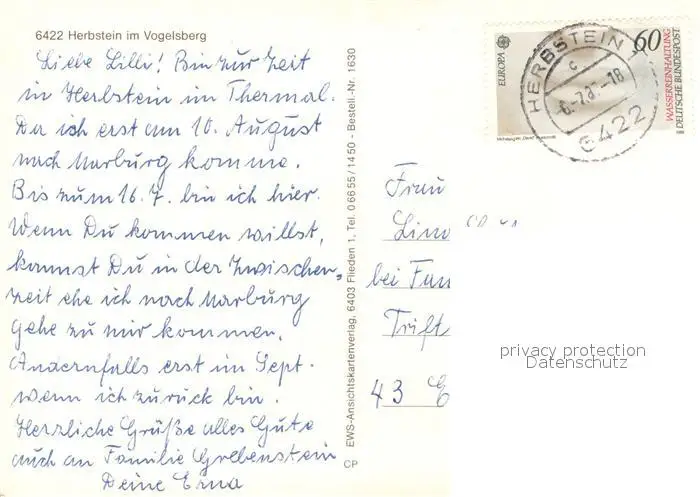 6422 Herbstein im Vogelsberg
Liebe Lilli! Bin zur Zeit
in Herbstein im Thermal.
Da ich erst am 10. August
nach Marburg komme.
Bis zum 16.7. bin ich hier.
Wenn Du kommen willst,
kannst Du in der Zwischen,
zeit ehe ich nach Marburg
gehe zu mir kommen.
Andernfalls erst im Sept.
wenn ich zurück bin.
Herzliche Grüße alles Gute
auch an Familie Grebenstein
Deine Erna
EWS-Ansichtskartenverlag, 6403 Flieden 1, Tel. 06655/1450 - Bestell.-Nr. 1630
CP
EUROPA
60
WASSERREINHALTUNG
DEUTSCHE BUNDESPOST
HERBSTEIN 1
c
6422
Frau
bei
Trift
43
privacy protection
Datenschutz